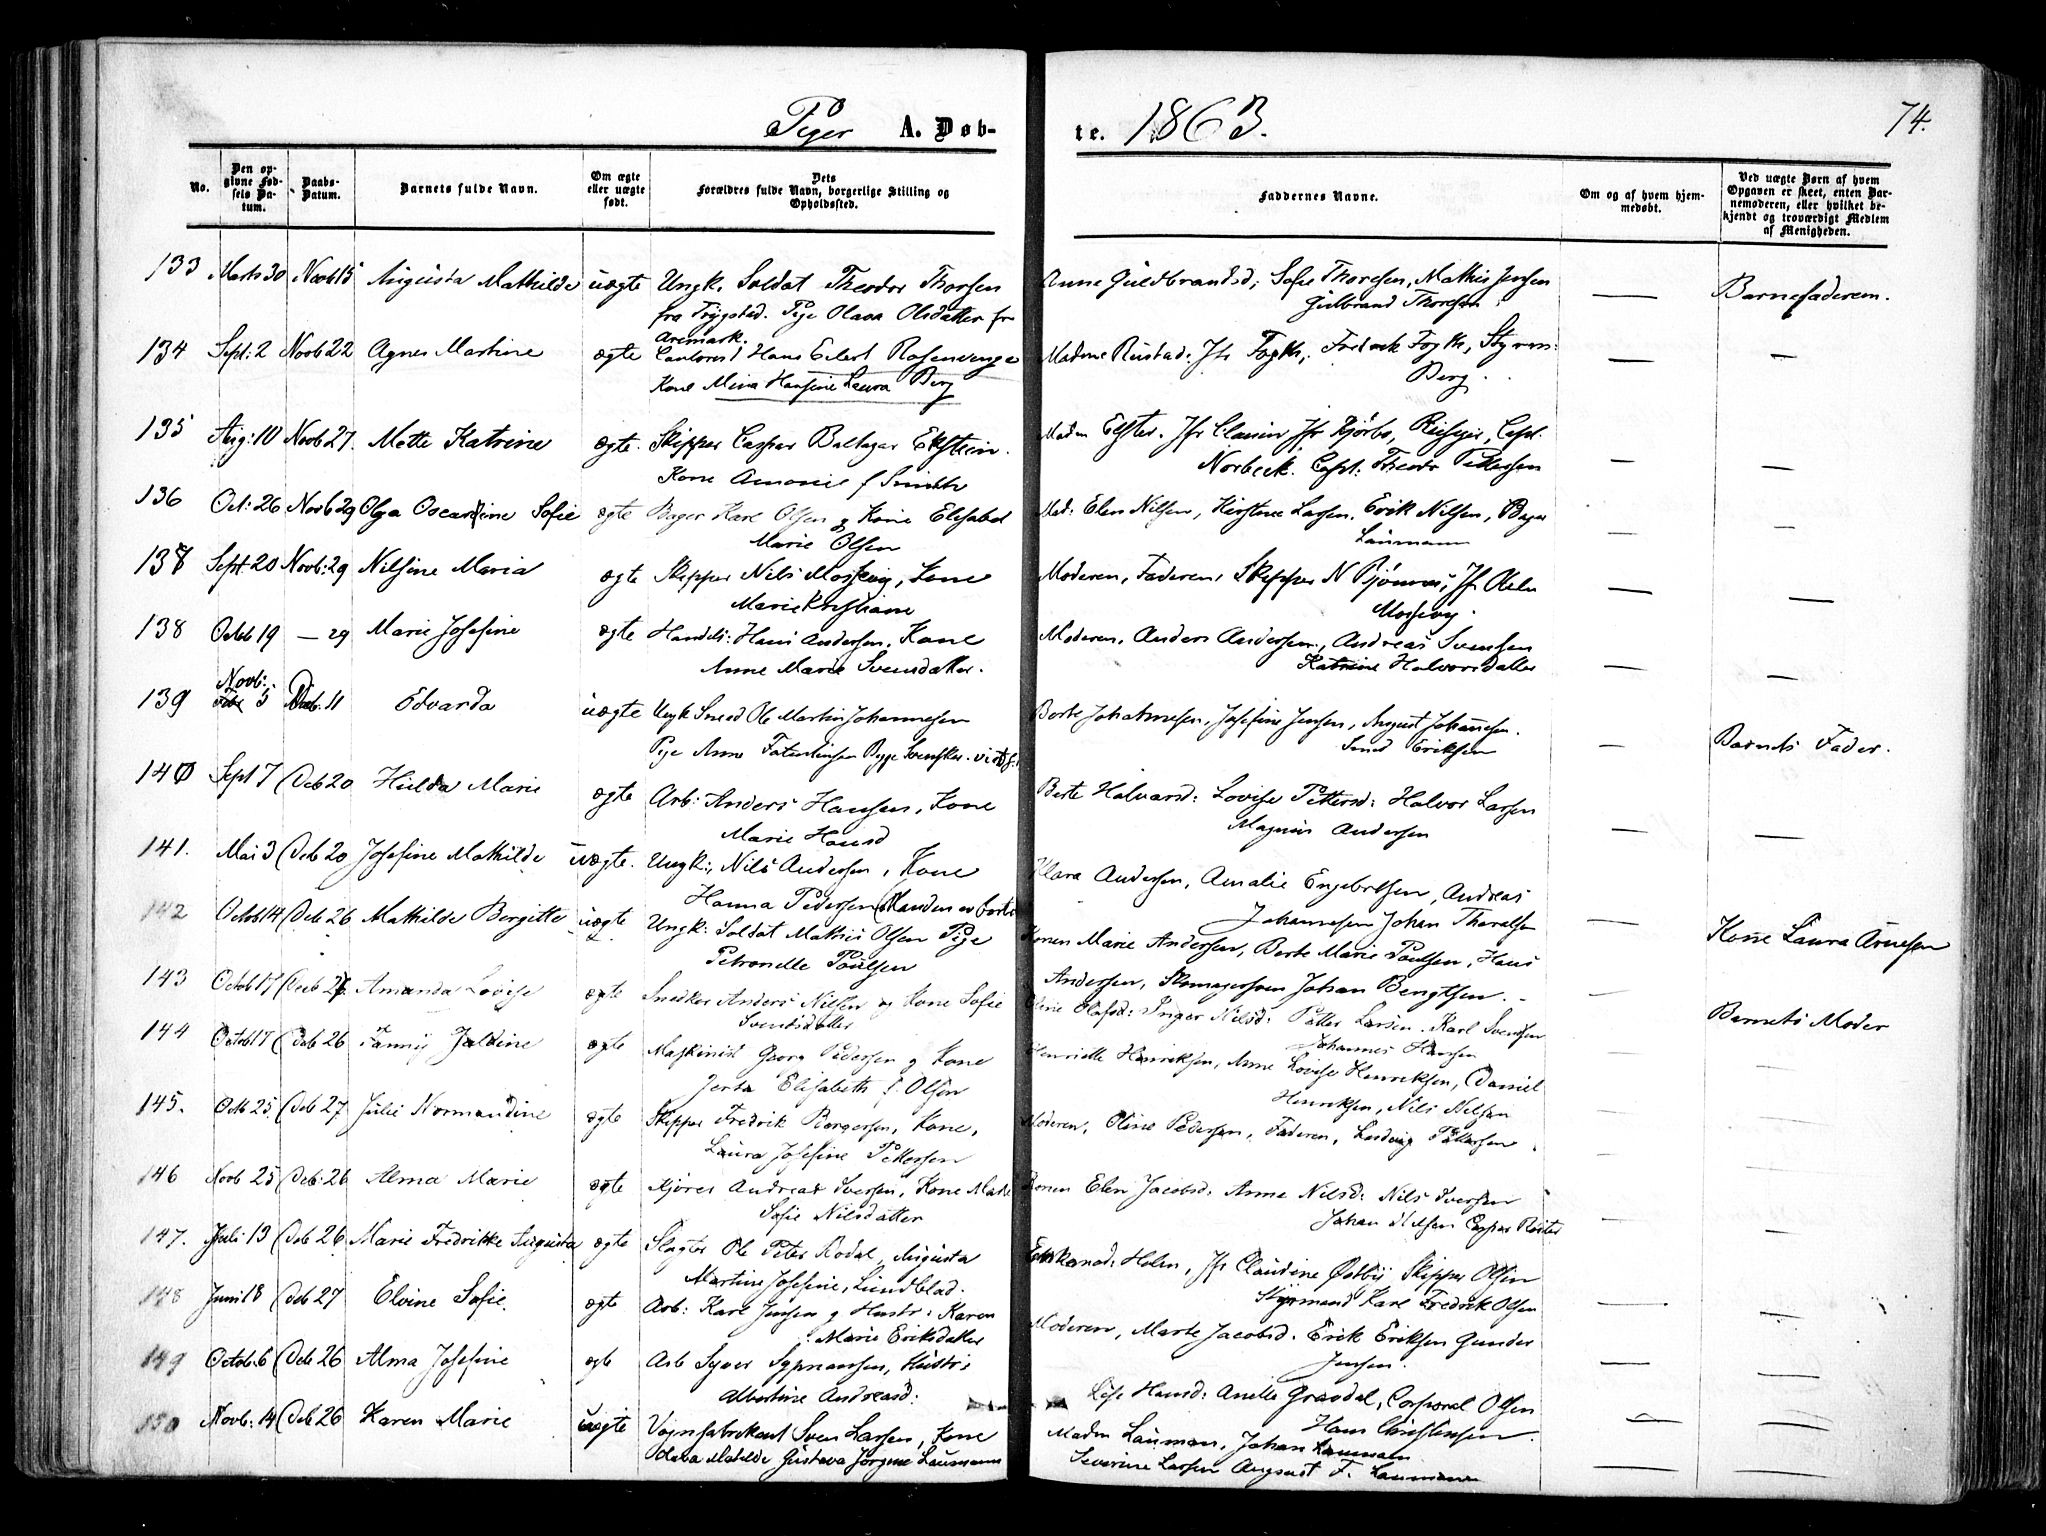 Piger A. Døb-
te. 1863.
74.
No.
Den opgivne Fødsels Datum.
Daabs-Datum.
Barnets fulde Navn.
Om ægte eller uægte født.
Dets Forældres fulde Navn, borgerlige Stilling og Opholdssted.
Faddernes Navne.
Om og af hvem hjemmedøbt.
Ved uægte Børn af hvem Opgaven er skeet, enten Barnemoderen, eller hvilket bekjendt og troværdigt Medlem af Menigheden.
133 Marts 30 Novb 15 Augusta Mathilde uægte Ungk. Soldat Theodor Thorsen
fra Trygstad. Pige Olava Olsdatter fr
Aremark.
Anne Guldbrandsd, Sofie Thoresen, Mathis Jensen
Gulbrand Thoresen
— Barnefaderen.
134 Sept: 2 Novb 22 Agnes Martine ægte Hans Eilert Rosenvenge
Kone Mina Hansine Laura Berg
Madame Rustad. Jfr Fogth, Fredrek Fogth, Styrm:
Berg.
— —
135 Aug: 10 Novb 27. Mette Katrine ægte. Skipper Casper Baltazar Ekstein.
Kone f Smith
Madm Elster. Jfr Jfr Kjørbo, Capt.
Norbeck. Capt. Theodr Pettersen
— —
136 Oct: 26 Novb 29 Olga Sofie ægte Bager Karl Olsen og Kone Elisabet
Marie Olsen
Mad: Elen Nilsen, Kirstine Larsen. Erik Nilsen, Bager
Laumann
— —
137 Sept. 20 Novb: 29 Nilsine Maria ægte Skipper Nils Kone
Marie Kristiane
Moderen, Faderen, Skipper N Jfr
— —
138 Octb 19 — 29 Marie Josefine ægte Handels: Hans Andersen. Kone
Anne Marie Svensdatter.
Moderen. Anders Andersen, Andreas Svensen
Katrine Halvorsdatter
— —
139 Novb: 5 Deb. 11 Edvarda uægte Ungk Sned Ole Martin Johannesen
Pige Anne
Berte Johannesen, Josefine Jensen, August Johannesen.
Sned Eriksen
— Barnets Fader.
140 Sept 7 Deb 20 Hulda Marie ægte Arb: Anders Hansen, Kone
Marie Hansd
Berte Halvorsd: Lovise Pettersd: Halvor Larsen
Magnus Andersen
— —
141. Mai 3 Deb 20 Josefine Mathilde uægte. Ungk:, Nils Andersen, Kone
Hanna Pedersen (Manden er borte
Klara Andersen, Amalie Engebretsen, Andreas
Johannesen Johan Thoralfsen
— Kone Laura Arnesen
142 Octob 14 Deb 26 Mathilde Bergitte uægte Ungk: Soldat Mathis Olsen Pige
Petronelle Poulsen
Konen Marie Andersen, Berte Marie Poulsen, Hans
Andersen, Skomagersven Johan Bengtsen.
— Barnets Moder
143 Octob 17 Deb 27 Amanda Lovise ægte Snedker Anders Nilsen og Kone Sofie
Svendsdatter
Oline Olafsd: Inger Nilsd: Petter Larsen. Karl Svendsen
Johannes Hansen
144 Octob 17 Deb 26 Fanny ægte Maskinist Georg Pedersen og Kone
Elisabeth f. Olsen
Henriette Henriksen, Anne Lovise Henriksen, Daniel
Henriksen, Nils Nilsen
145. Octb 25. Deb 27 Julie Normandine ægte Skipper Fredrik Borgersen, Kone,
Laura Josefine Pettersen
Moderen, Oline Pedersen, Faderen, Ludvig Pettersen
146 Novb 25 Deb: 26 Alma Marie ægte Kjører Andreas Iversen, Kone
Sofie Nilsdatter
Konen Elen Jacobsd: Anna Nilsd: Nils Iversen
Johan Casper
147. Juli 13 Deb 26 Marie Fredrikke Augusta ægte Slagter Ole Peter Rodal, Augusta
Martine Josefine, Lundblad.
Enkemad: Holm, Jfr Claudine Østby Skipper Olsen
Styrmand Karl Fredrik Olsen
148 Juni 18 Deb 27 Elvine Sofie. ægte Arb: Karl Jensen og Hustr: Karen
Marie Eriksdatter
Moderen, Marte Jacobsd. Erik Eriksen Gunder
Jensen.
149 Octob. 6 Deb 26 Alma Josefine ægte Arb Syver Hustr:
Albertine Andreasd:
Lise Hansd: Anette Gravdal, Corporal Olsen
Hans Christensen.
150 Novb: 14 Deb 26 Karen Marie uægte Vognfabrikant Sven Larsen, Kone
Matilde Gustava Jørgine Laumann
Madm Lauman, Johan Lauman
Severine Larsen August F. Laumann